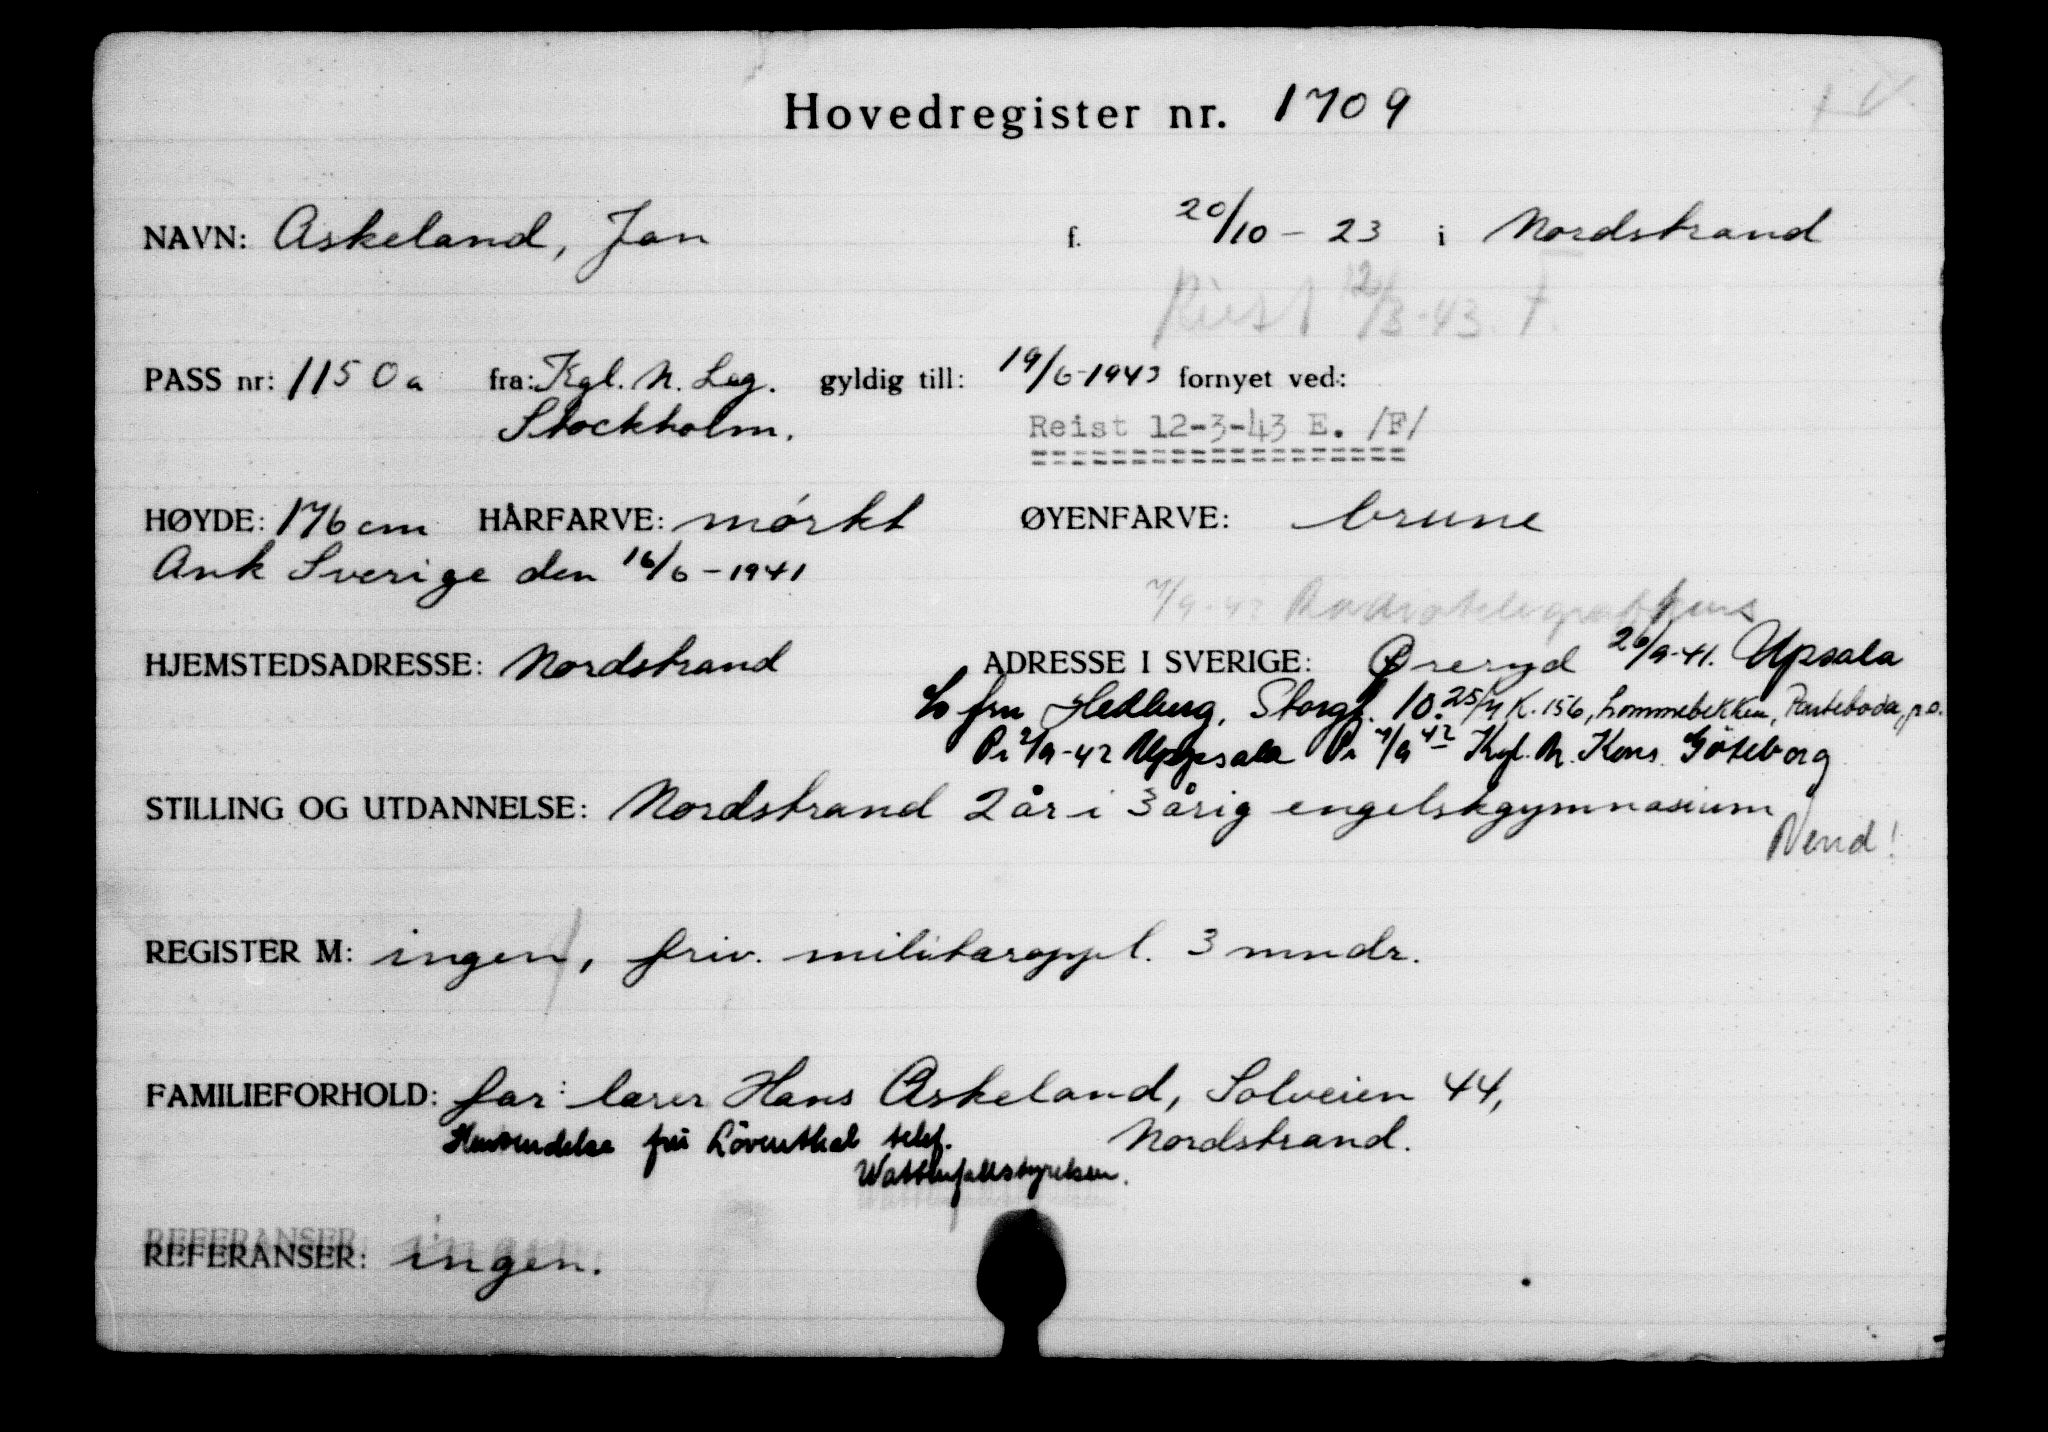 Hovedregister nr. 1709
NAVN: Askeland, Jan f. 20/10 - 23 i Nordstrand
Reist 12/3-43. F.
PASS nr: 1150a fra: Kgl. N. Leg. gyldig till: 19/6-1943 fornyet ved:
Stockholm. Reist 12-3-43 E. /F/
HØYDE: 176 cm HÅRFARVE: mórkt ØYENFARVE: brune
Ank Sverige den 16/6-1941
7/9-42 Radiotelegrafkurs
HJEMSTEDSADRESSE: Nordstrand ADRESSE I SVERIGE: Øreryd 20/9-41. Upsala
fru Hedberg, Storg. 10. 25/4 K. 156, Lommebekken, p.a.
2/9-42 Uppsala 7/9 42 Kgl. N. Kons. Göteborg
STILLING OG UTDANNELSE: Nordstrand 2 år i 3årig engelskgymnasium
Vend!
REGISTER M: ingen, friv. militæroppl. 3 mndr.
FAMILIEFORHOLD: far: lærer Hans Askeland, Solveien 44,
Henvendelse frü Löventhal telef. Nordstrand.
Wattenfallstyrelsen.
REFERANSER: ingen.